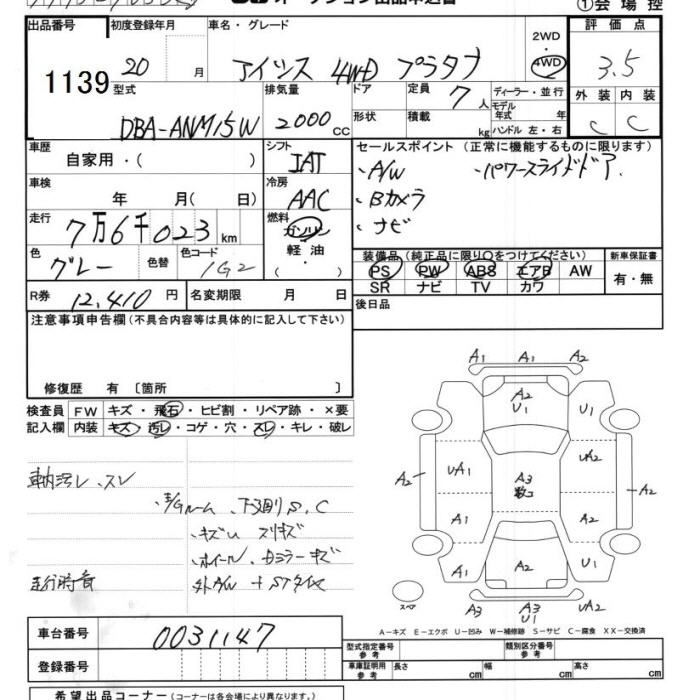 オークション出品申込書
①会場控
出品番号 初度登録年月 車名・グレード 2WD 評価点
1139 20 月 アイシス 4WD プラタナ 4WD 3.5
型式 排気量 ドア 定員 7人 ディーラー・並行 外装 内装
DBA-ANM15W 2000cc 形状 積載 kg モデル年式 年式 ハンドル 左・右 C C
車歴 自家用・( ) シフト IAT セールスポイント (正常に機能するものに限ります)
・A/W ・パワースライドドア
車検 年 月(日) 冷房 AAC ・Bカメラ
走行 7万6千023km 燃料 ガソリン ・ナビ
色 グレー 色替 色コード 1G2 軽油 ・( )
装備品(純正品に限り○をつけてください) 新車保証書
PS PW ABS エアB AW 有・無
SR ナビ TV カワ
R券 12,410円 名変期限 月 日 後日品
注意事項申告欄(不具合内容等は具体的に記入して下さい)
修復歴 有 〔箇所 〕
検査員 FW キズ・飛石・ヒビ割・リペア跡・×要
記入欄 内装 キズ・汚レ・コゲ・穴・スレ・キレ・破レ
車内汚レ、スレ
・E/Gルーム、下廻りS、C
・キズU スリキズ
・ホイール、ミラーキズ
走行時音 外A/W + STタイヤ
A1 A1 A2
A2
U1 U1
U1
UA1 UA2
A3
数コ
A2 A2
A1 A2
A1 A2 U1
スペア A3 A3 UA2
U1
A-キズ E-エクボ U-凹み W-補修跡 S-サビ C-腐食 XX-交換済
車台番号 0031147
型式指定番号 参考 類別区分番号 参考
登録番号 車庫証明用 参考 長さ cm 幅 cm 高さ cm
希望出品コーナー(コーナーは各会場により異なります。)